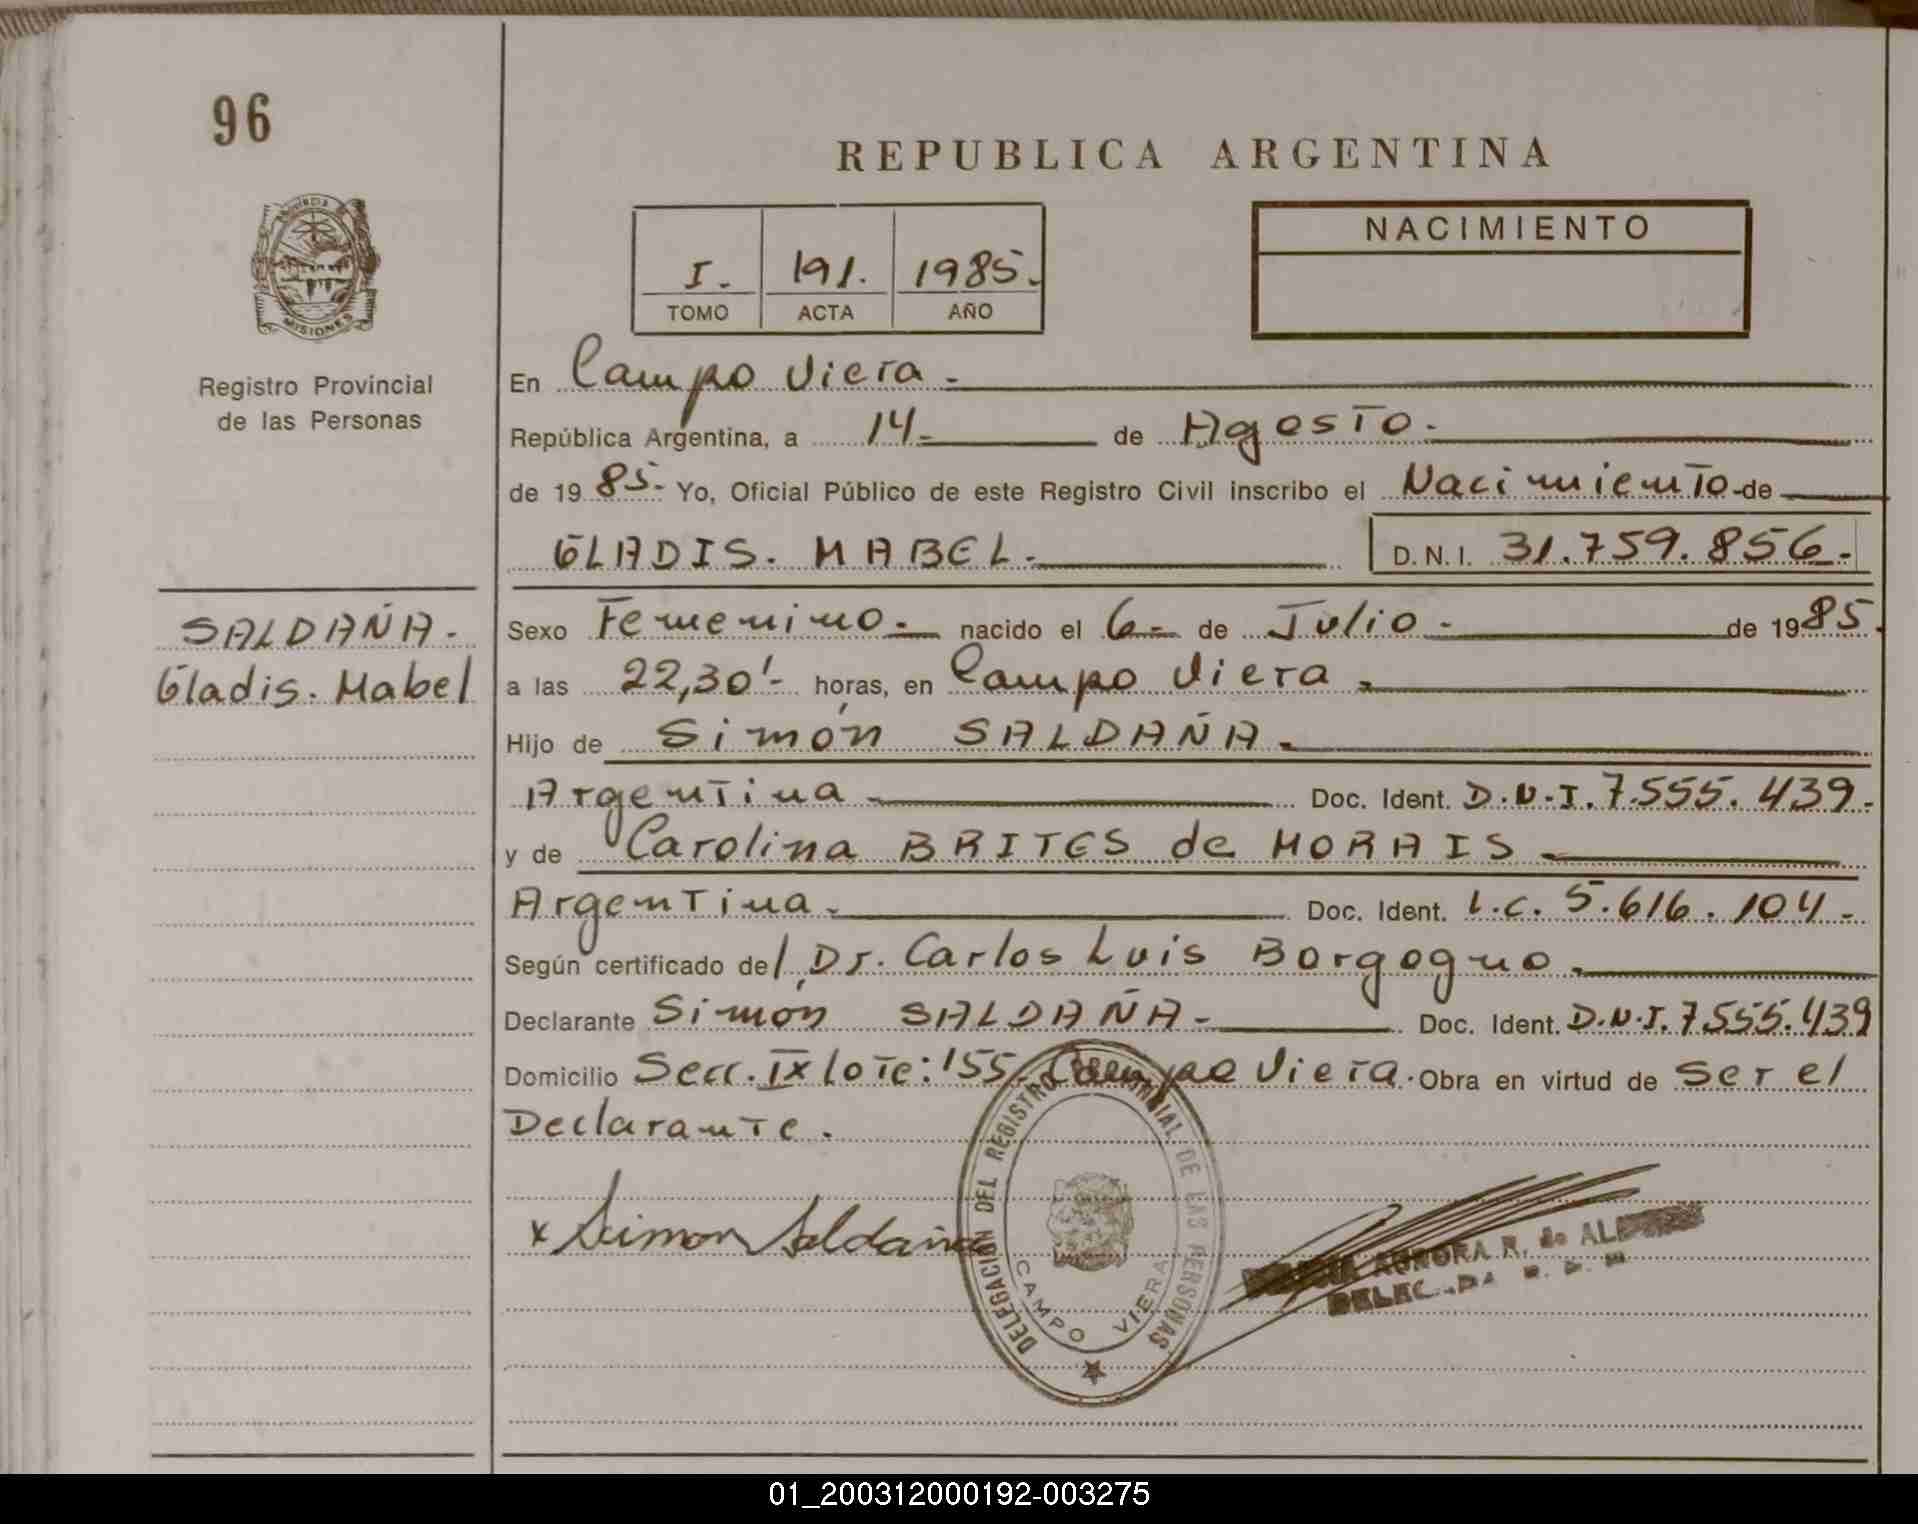 96
REPUBLICA ARGENTINA
PROVINCIA DE MISIONES
Registro Provincial
de las Personas
I. 191. 1985.
TOMO ACTA AÑO
NACIMIENTO
En Campo Viera.
República Argentina, a 14. de Agosto.
de 1985. Yo, Oficial Público de este Registro Civil inscribo el Nacimiento de
GLADIS. MABEL. D.N.I. 31.759.856.
SALDAÑA.
Gladis. Mabel
Sexo Femenino. nacido el 6 de Julio. de 1985.
a las 22,30' horas, en Campo Viera.
Hijo de Simón SALDAÑA.
Argentina Doc. Ident. D.N.I. 7.555.439.
y de Carolina BRITES de MORAIS.
Argentina. Doc. Ident. L.C. 5.616.104.
Según certificado del Dr. Carlos Luis Borgogno.
Declarante Simón SALDAÑA. Doc. Ident. D.N.I. 7.555.439
Domicilio Secc. IX lote: 155. Campo Viera. Obra en virtud de Ser el
Declarante.
x Simon Saldaña
DELEGACION DEL REGISTRO PROVINCIAL DE LAS PERSONAS
CAMPO VIERA
AURORA R. de
01_200312000192-003275